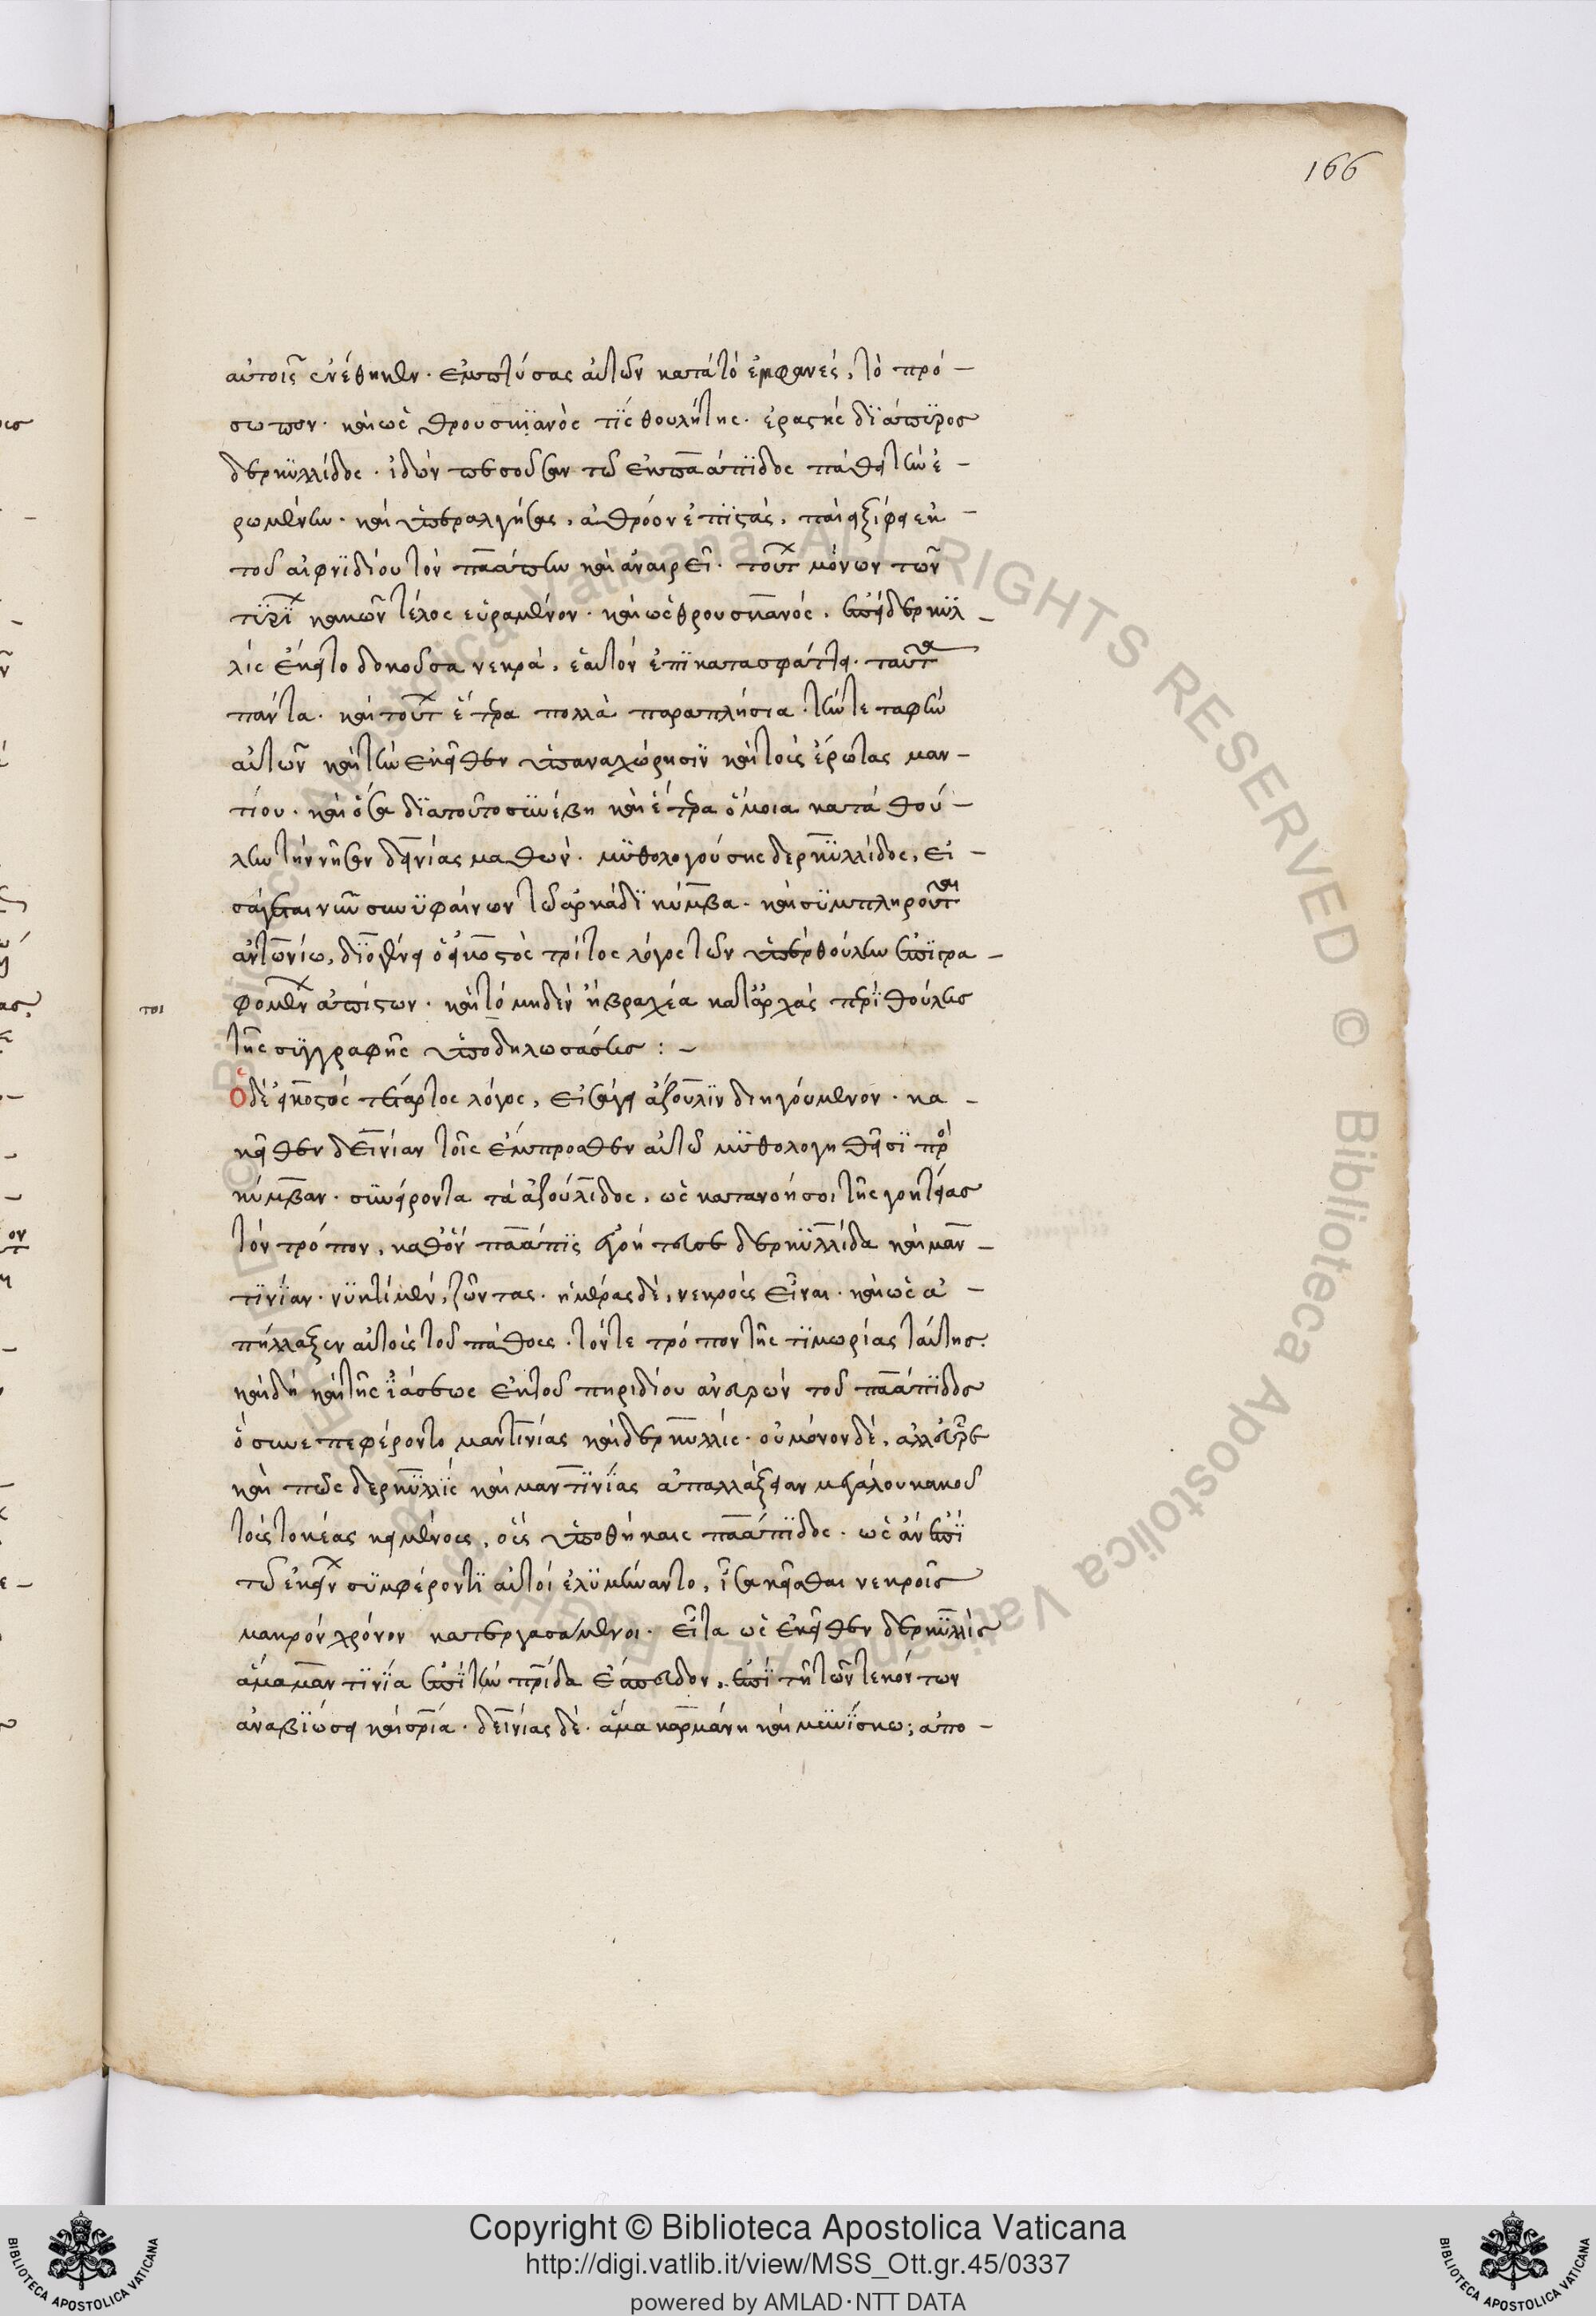 166
αὐτοῖς ἐνέθηκεν. ἐμπτύσας αὐτῶν κατὰ τὸ ἐμφανές, τὸ πρό-
σωπον. καὶ ὡς Θρουσκιανός τις θουλήτης. ἐραστής διάπυρος
δερκυλλίδος. ἰδών πεσοῦσαν τῶ ἐκ παάπιδος πάθει τὴν ἐ-
ρωμένην. καὶ ὑπεραλγήσας, ἀθρόον ἐπιστάς, παίει ξίφει ἐκ
τοῦ αἰφνιδίου τὸν παάπιν καὶ ἀναιρεῖ. τούτων μόνων τῶν
κακῶν τέλος εὑραμένον. καὶ ὡς θρουσκανός, ἐπεὶ δερκυλ-
λίς ἔκειτο δοκοῦσα νεκρά, ἑαυτὸν ἐπικατασφάττει. ταῦτα
πάντα. καὶ τούτων ἕτερα πολλὰ παραπλήσια. τήν τε ταφὴν
αὐτῶν καὶ τὴν ἐκεῖθεν ὑπαναχώρησιν καὶ τοὺς ἔρωτας μαν-
τίου. καὶ ὅσα διατοῦτο συνέβη καὶ ἕτερα ὅμοια κατὰ θού-
λην τὴν νῆσον δεινίας μαθών. μυθολογούσης δερκυλλίδος, εἰ-
σάγεται νῦν συνυφαίνων τῶ ἀρκάδι κύμβα. καὶ συμπληροῦται
ἀντωνίω, διογένει ὁ εἰκοστὸς τρίτος λόγος τῶν ὑπὲρ θούλην ἐπιγρα-
τοι
φομένων ἀπίστων. καὶ τό μηδέν ἢ βραχέα κατ' ἀρχάς περὶ θούλης
τῆς συγγραφῆς ὑποδηλωσάσης :-
Ὁ δὲ εἰκοστός τέταρτος λόγος, εἰσάγει ἀζοῦλιν διηγούμενον. κα-
κεῖθεν δεινίαν τοῖς ἔμπροσθεν αὐτῶ μυθολογηθεῖσι πρὸ
κύμβαν. συνείροντα τὰ ἀζούλιδος, ὡς κατανοήσοι τῆς γοητείας
τὸν τρόπον, καθ' ὅν παάπις ἐγοήτευσε δερκυλλίδα καὶ μαν-
τινίαν. νυκτὶ μέν, ζῶντας. ἡμέρας δέ, νεκρούς εἶναι. καὶ ὡς ἀ-
πήλλαξεν αὐτοὺς τοῦ πάθους. τόν τε τρόπον τῆς τιμωρίας ταύτης.
καὶ δὴ καὶ τῆς ἰάσεως ἐκ τοῦ πηριδίου ἀνευρών τοῦ παάπιδος
ὁ συνεπεφέροντο μαντινίας καὶ δερκυλλίς. οὐ μόνον δέ, ἀλλ' εὗρε
καὶ πῶς δερκυλλίς καὶ μαντινίας ἀπαλλάξειαν μεγάλου κακοῦ
τοὺς τοκέας κειμένους, οὓς ὑποθήκαις παάπιδος. ὡς ἂν ἐπὶ
τῶ ἐκείνων συμφέροντι αὐτοὶ ἐλυμήναντο, ἶσα κεῖσθαι νεκροῖς
μακρόν χρόνον κατεργασάμενοι. εἶτα ὡς ἐκεῖθεν δερκυλλίς
ἅμα μαντινία ἐπὶ τὴν πατρίδα ἔσπευδον, ἐπὶ τῆ τῶν τεκόντων
ἀναβιώσει καὶ σωτηρία. δεινίας δὲ. ἅμα καρμάνη καὶ μενίσκω, ἀπο-
Copyright © Biblioteca Apostolica Vaticana
http://digi.vatlib.it/view/MSS_Ott.gr.45/0337
powered by AMLAD·NTT DATA
BIBLIOTECA APOSTOLICA VATICANA
BIBLIOTECA APOSTOLICA VATICANA